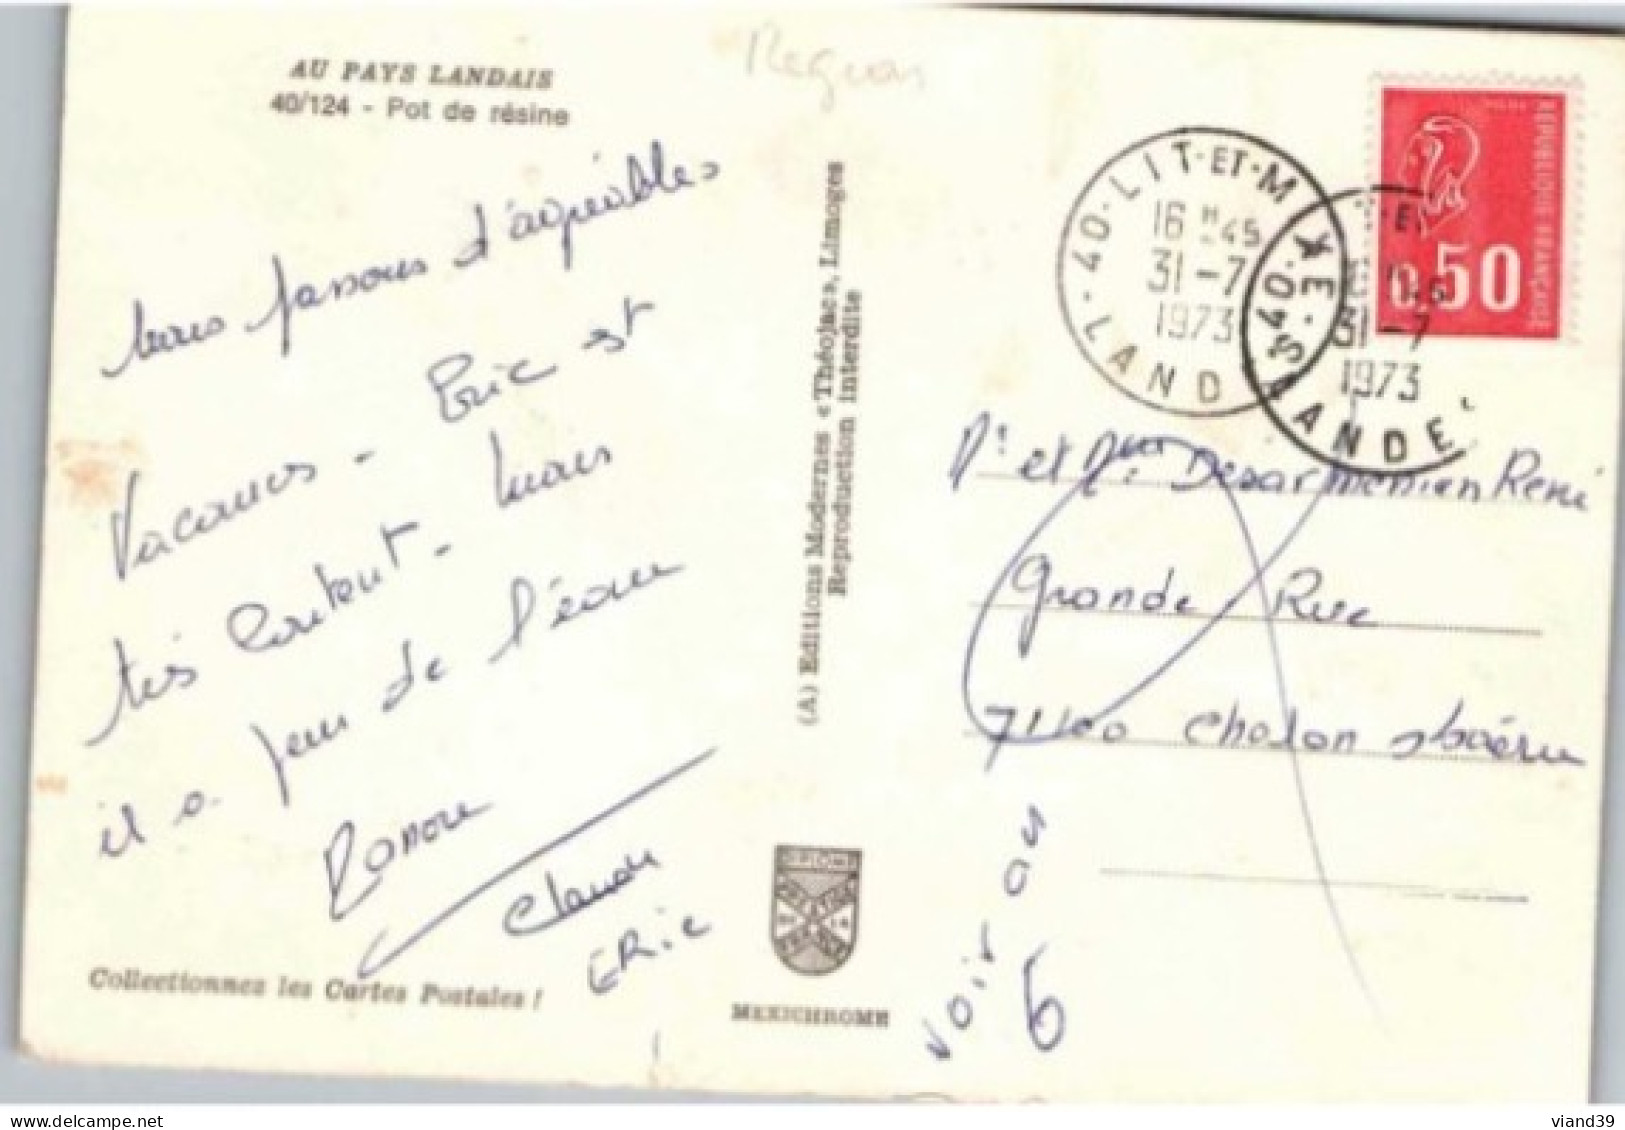 Region
AU PAYS LANDAIS
40/124 - Pot de résine
Nous passons d'agréables
Vacances - Eric est
très content - mais
il a peur de l'eau
Claude
ERic
Collectionnez les Cartes Postales !
(A) Editions Modernes « Théojac », Limoges
Reproduction Interdite
DIPLOME
PRESTIGE
DE LA
FRANCE
MEXICHROME
40 - LIT-ET-MIXE
16 H 45
31-7
1973
LANDES
31-7
1973
LANDES
REPUBLIQUE FRANÇAISE
0,50
Mr et Mme Desarmenien René
Grande Rue
71100 Chalon s/Saône
voir au
6
viand39